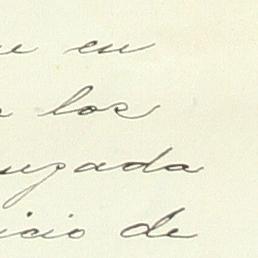 en
los
uzgada
icio de